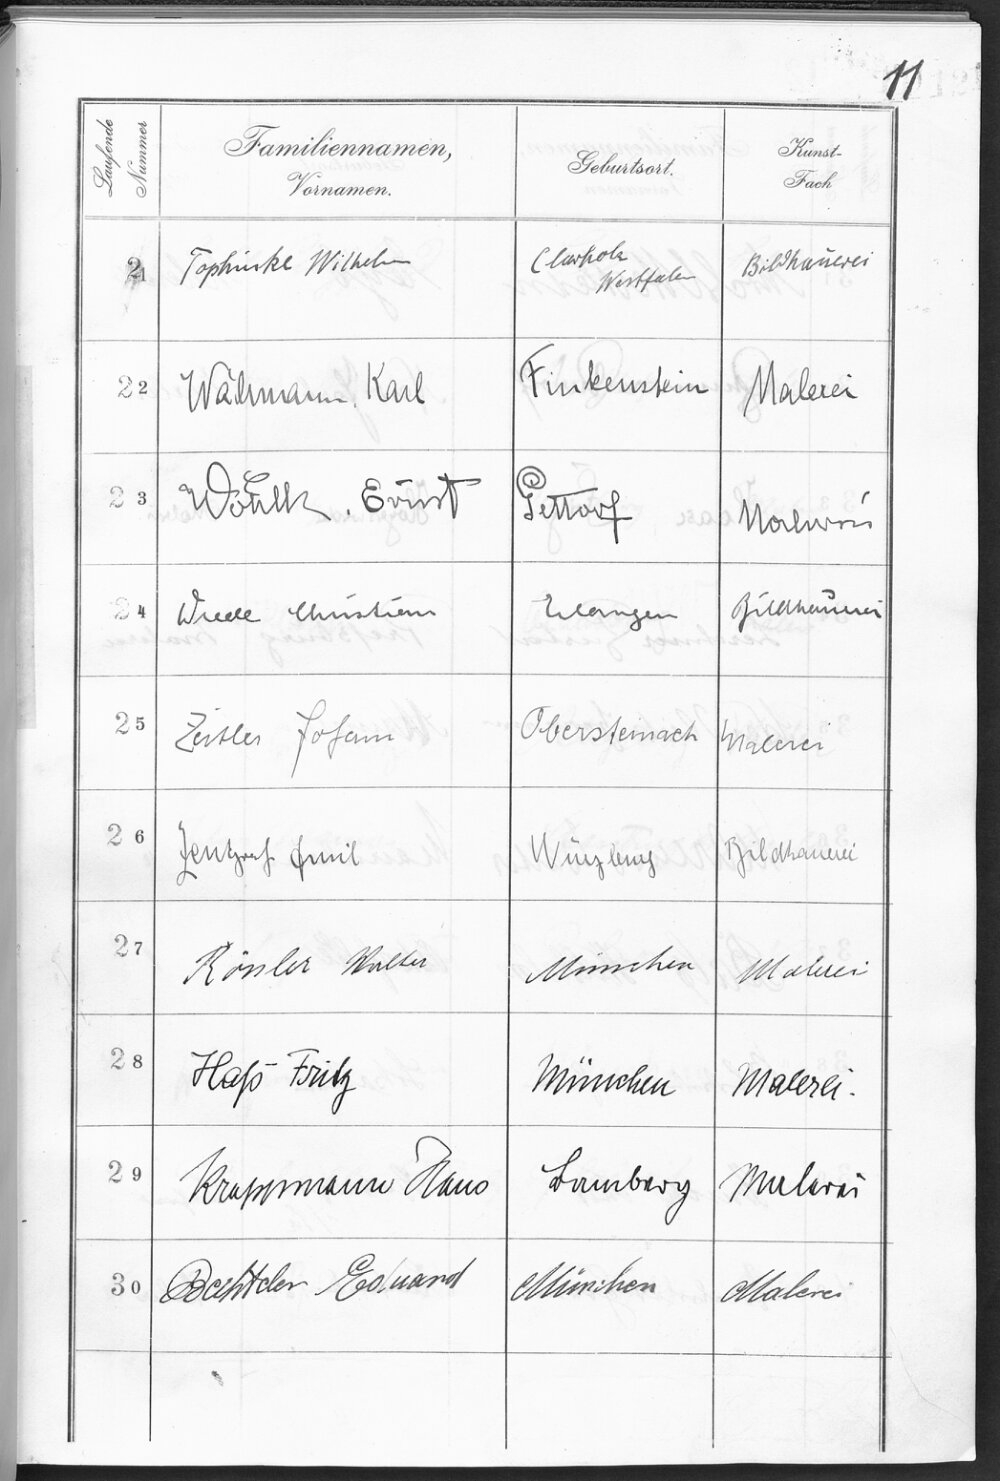 11
Laufende Nummer
Familiennamen,
Vornamen.
Geburtsort.
Kunst-
Fach
21 Tophinke Wilhelm Clarholz Bildhauerei
Westfalen
22 Karl Finkenstein Malerei
23 Wöhlk, Ernst Malerei
24 Wrede Christian Erlangen Bildhauerei
25 Zeitler Johann Obersteinach Malerei
26 Zentgraf Emil Würzburg Bildhauerei
27 Rössler Walter München Malerei
28 Haß Fritz München Malerei.
29 Krappmann Hans Bamberg Malerei
30 Bechtler Eduard München Malerei